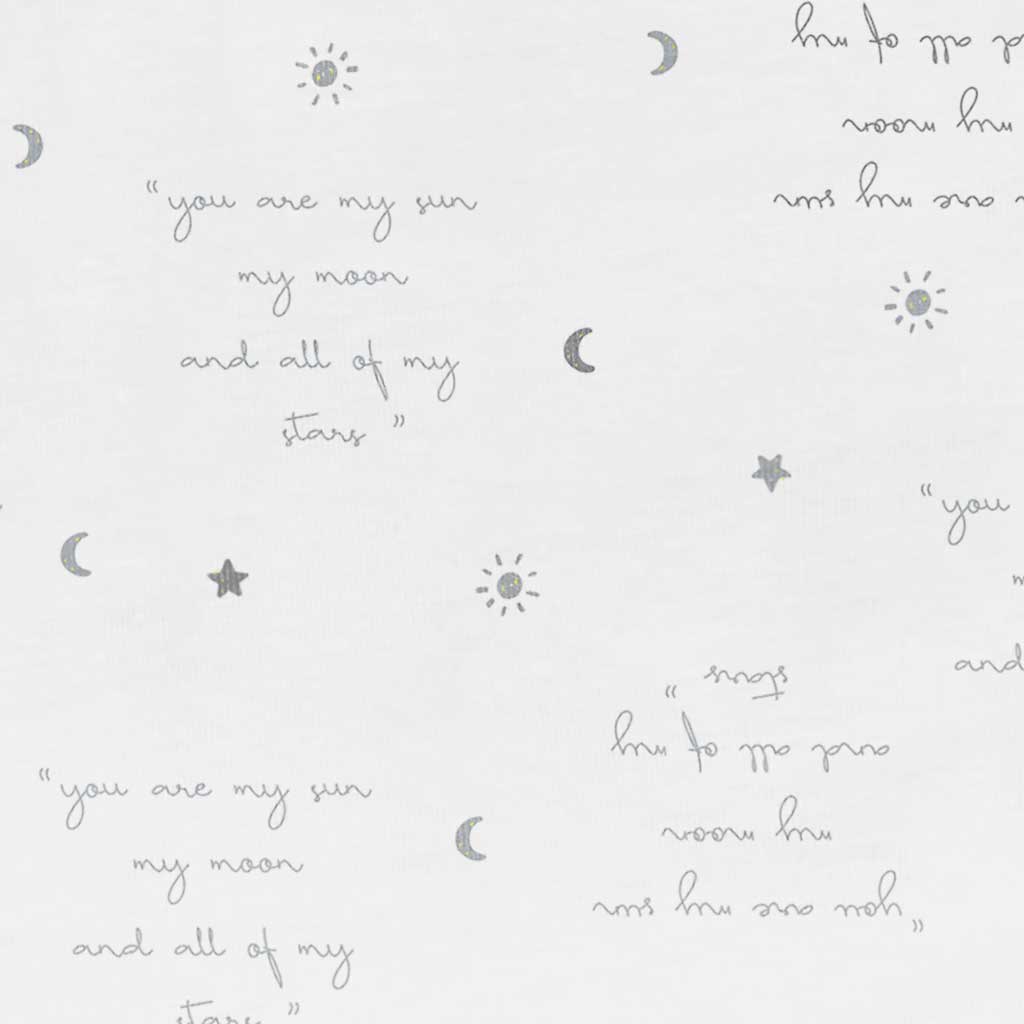 and all of my
my moon
are my sun
“you are my sun
my moon
and all of my
stars ”
“you
and
stars ”
and all of my
my moon
“you are my sun
“you are my sun
my moon
and all of my
stars ”